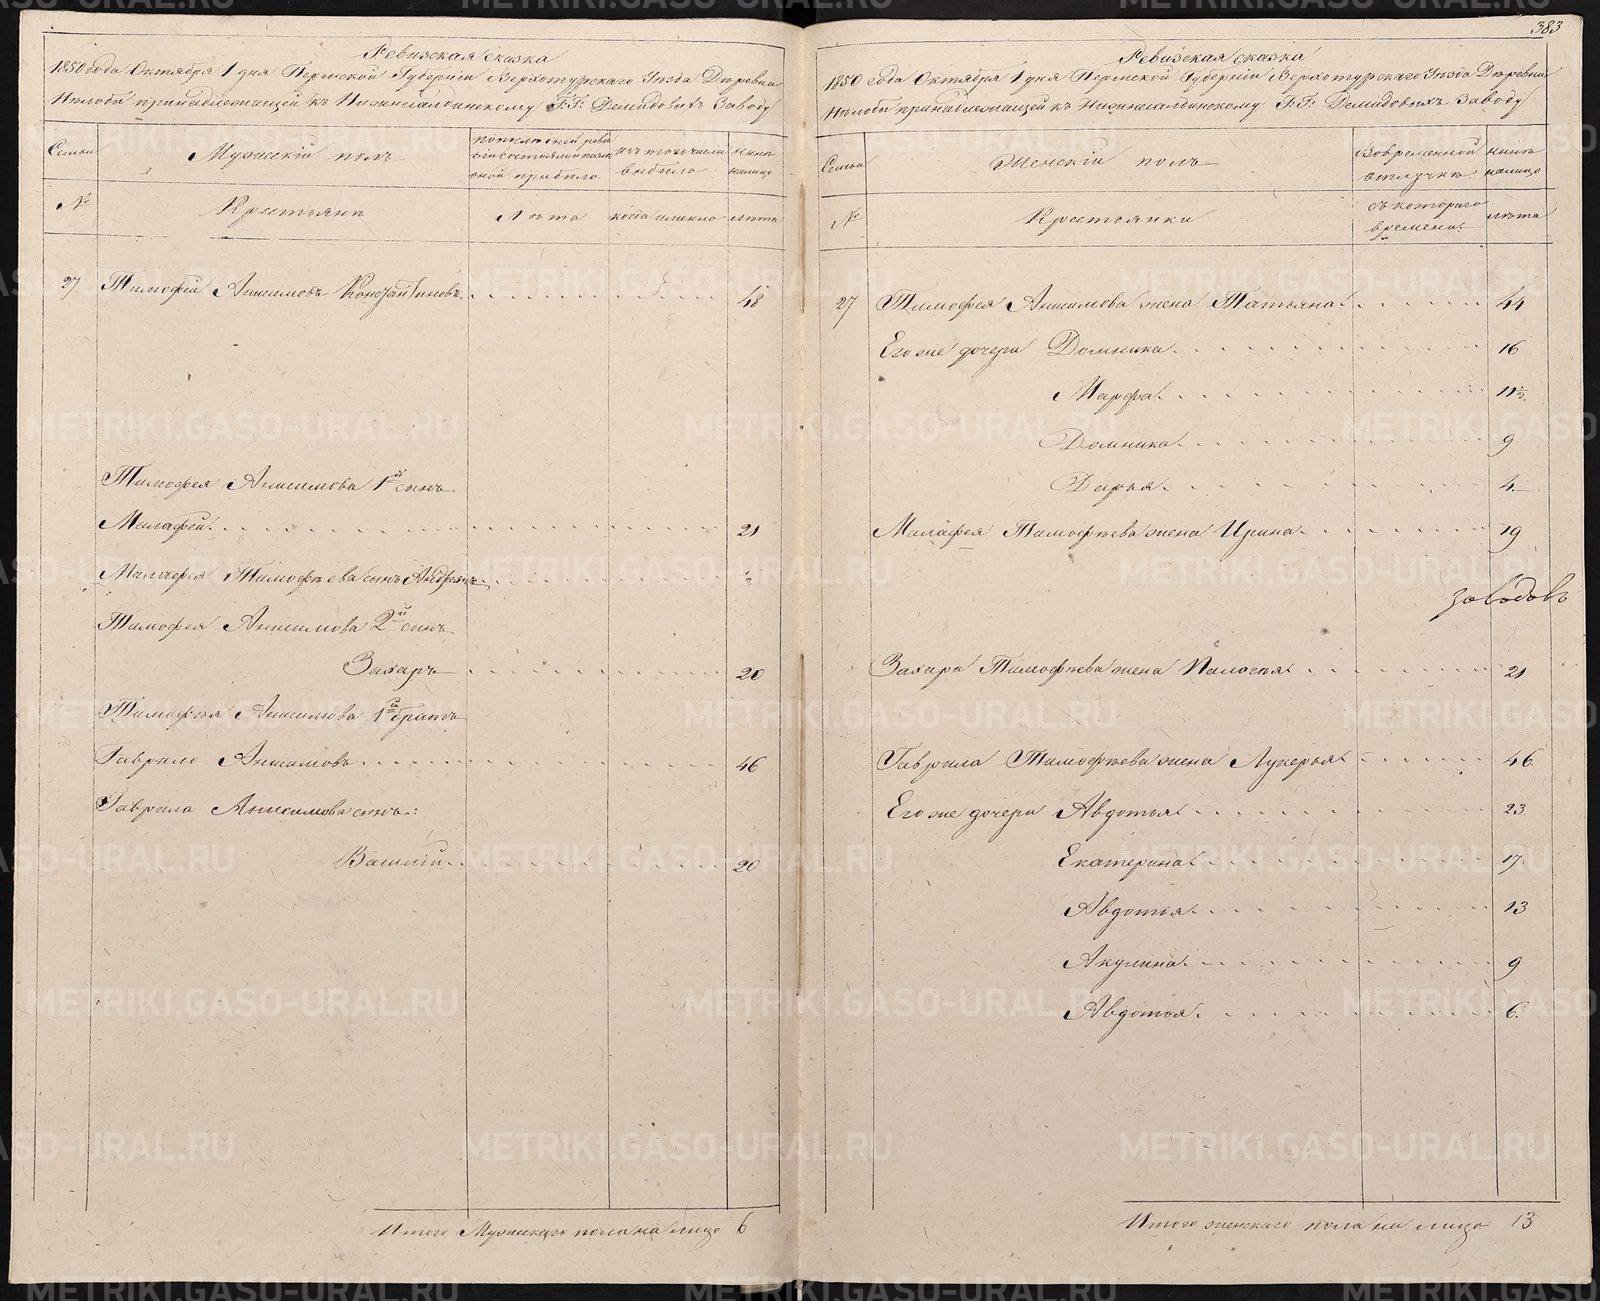 383
Ревизская сказка
1850 года Октября 1 дня Пермской Губернiи Верхотурскаго Уезда Деревни
принадлежащей къ Нижнесалдинскому Г.Г. Демидовыхъ Заводу
Семьи
Мужескiй полъ
Изъ того числа выбыло
Ныне налицо
№
Крестьяне
Лета
когда именно
лета
27 Тимофей Анисимовъ Константиновъ 48
Тимофея Анисимова 1й сынъ
Малафей 21
Малафея Тимофеева сынъ Андреянъ
Тимофея Анисимова 2й сынъ
Захаръ 20
Тимофея Анисимова 1й братъ
Гаврило Анисимовъ 46
Гаврила Анисимова сынъ:
Василiй 20
Итого Мужескаго пола на лицо 6
Ревизская сказка
1850 года Октября 1 дня Пермской Губернiи Верхотурскаго Уезда Деревни
принадлежащей къ Нижнесалдинскому Г.Г. Демидовыхъ Заводу
Семьи
Женскiй полъ
Во временной отлучке
Ныне налицо
№
Крестьянки
Съ котораго времени
лета
27 Тимофея Анисимова жена Татьяна 44
Его же дочери Домника 16
Марфа 11½
Домника 9
Дарья 4
Малафея Тимофеева жена Ирина 19
заводовъ
Захара Тимофеева жена Палагея 21
Гаврила Тимофеева жена Лукерья 46
Его же дочери Авдотья 23
Екатерина 17
Авдотья 13
Акулина 9
Авдотья 6
Итого женскаго пола на лицо 13
METRIKI.GASO-URAL.RU